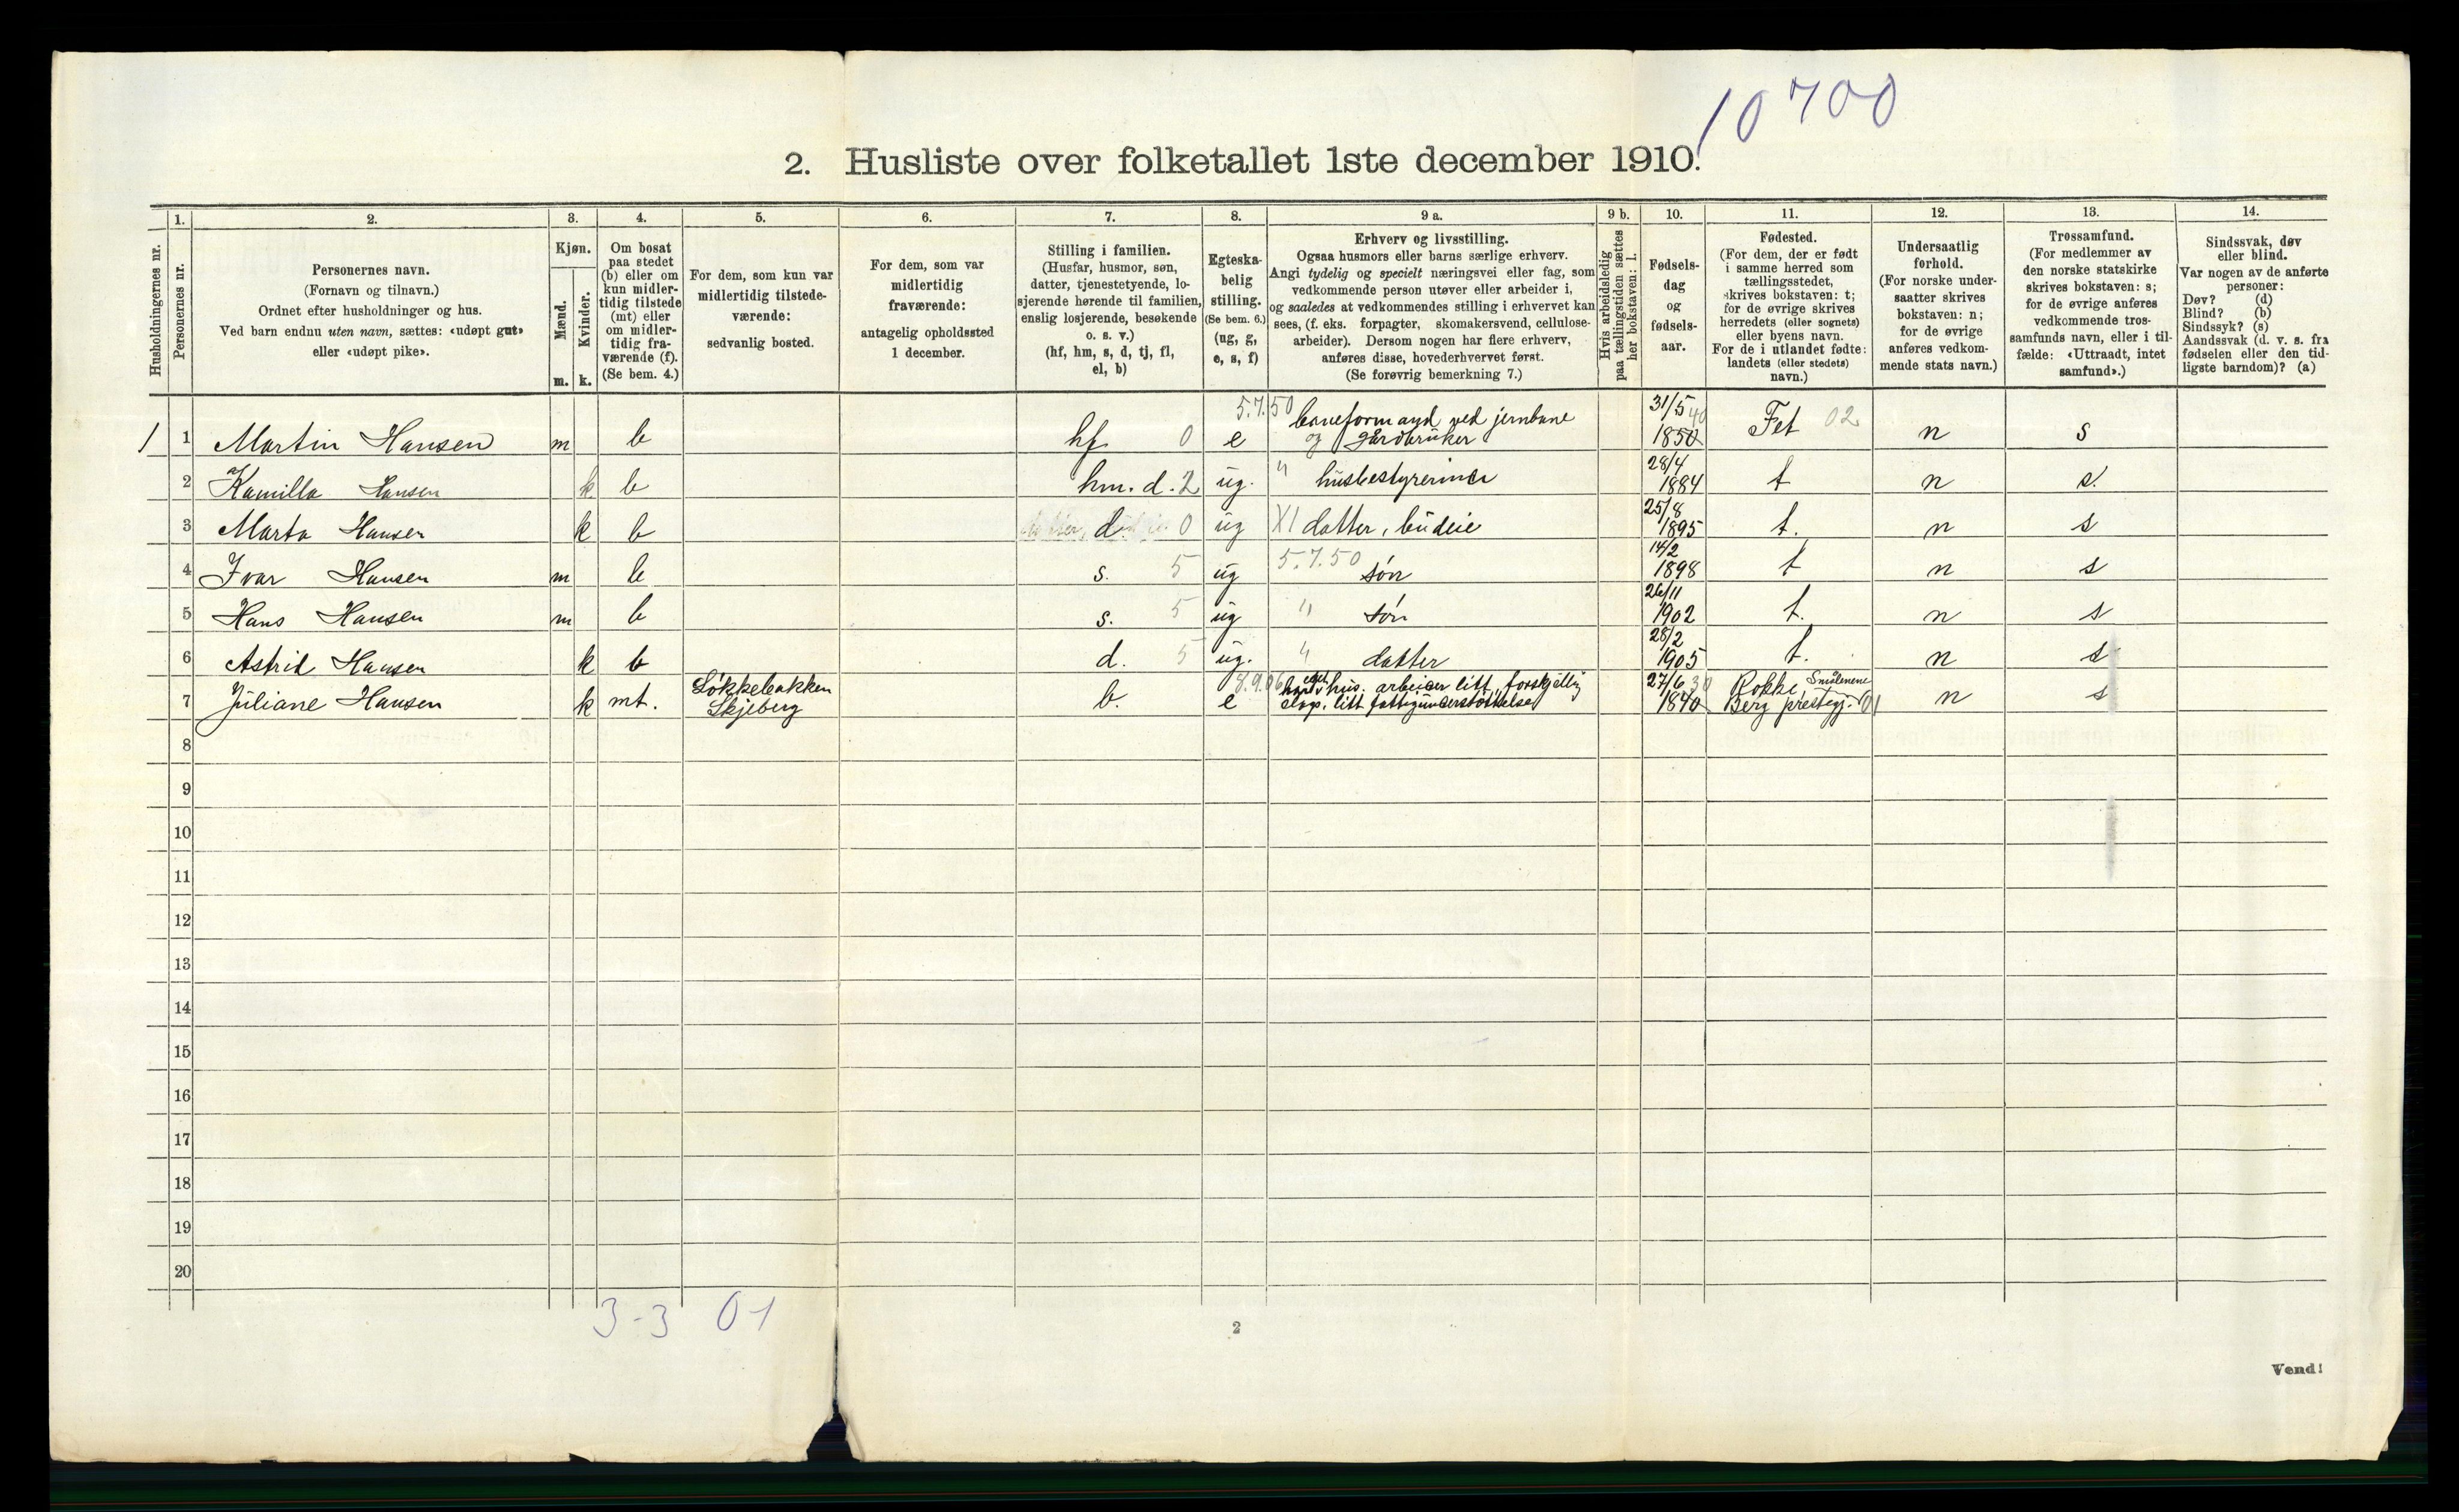 10700
2. Husliste over folketallet 1ste december 1910.
Husholdningernes nr.
1.
Personernes nr.
2.
Personernes navn.
(Fornavn og tilnavn.)
Ordnet efter husholdninger og hus.
Ved barn endnu uten navn, sættes: «udøpt gut»
eller «udøpt pike».
3.
Kjøn.
Mænd.
m.
Kvinder.
k.
4.
Om bosat
paa stedet
(b) eller om
kun midler-
tidig tilstede
(mt) eller
om midler-
tidig fra-
værende (f).
(Se bem. 4.)
5.
For dem, som kun var
midlertidig tilstede-
værende:
sedvanlig bosted.
6.
For dem, som var
midlertidig
fraværende:
antagelig opholdssted
1 december.
7.
Stilling i familien.
(Husfar, husmor, søn,
datter, tjenestetyende, lo-
sjerende hørende til familien,
enslig losjerende, besøkende
o. s. v.)
(hf, hm, s, d, tj, fl,
el, b)
8.
Egteska-
belig
stilling.
(Se bem. 6.)
(ug, g,
e, s, f)
9 a.
Erhverv og livsstilling.
Ogsaa husmors eller barns særlige erhverv.
Angi tydelig og specielt næringsvei eller fag, som
vedkommende person utøver eller arbeider i,
og saaledes at vedkommendes stilling i erhvervet kan
sees, (f. eks. forpagter, skomakersvend, cellulose-
arbeider). Dersom nogen har flere erhverv,
anføres disse, hovederhvervet først.
(Se forøvrig bemerkning 7.)
9 b.
Hvis arbeidsledig
paa tællingstiden sættes
her bokstaven: l.
10.
Fødsels-
dag
og
fødsels-
aar.
11.
Fødested.
(For dem, der er født
i samme herred som
tællingsstedet,
skrives bokstaven: t;
for de øvrige skrives
herredets (eller sognets)
eller byens navn.
For de i utlandet fødte:
landets (eller stedets)
navn.)
12.
Undersaatlig
forhold.
(For norske under-
saatter skrives
bokstaven: n;
for de øvrige
anføres vedkom-
mende stats navn.)
13.
Trossamfund.
(For medlemmer av
den norske statskirke
skrives bokstaven: s;
for de øvrige anføres
vedkommende tros-
samfunds navn, eller i til-
fælde: «Uttraadt, intet
samfund».)
14.
Sindssvak, døv
eller blind.
Var nogen av de anførte
personer:
Døv? (d)
Blind? (b)
Sindssyk? (s)
Aandssvak (d. v. s. fra
fødselen eller den tid-
ligste barndom)? (a)
5.7.50 baneformand ved jernbane 31/5 40
1 1 Martin Hansen m b hf 0 e og gårdbruker 1850 Fet 02 n s
28/4
2 Kamilla Hansen k b hm. d. 2 ug. " husbestyrerinde 1884 t n s.
25/8
3 Marta Hansen k b d. 0 ug XI datter, budeie 1895 t. n s
14/2
4 Ivar Hansen m b s. 5 ug 5.7.50 søn 1898 t n s
26/11
5 Hans Hansen m b s. 5 ug " søn 1902 t. n s
28/2
6 Astrid Hansen k b d. 5 ug. " datter 1905 t. n s
Løkkebakken 8.9.06 har eget hus. arbeider litt forskjellig 27/6 30 Rokke, Smålenene
7 Juliane Hansen k mt. Skjeberg b. e litt fattigunderstøttelse 1840 Berg prestegj. 01 n s
8
9
10
11
12
13
14
15
16
17
18
19
20
3-3 01
2
Vend!